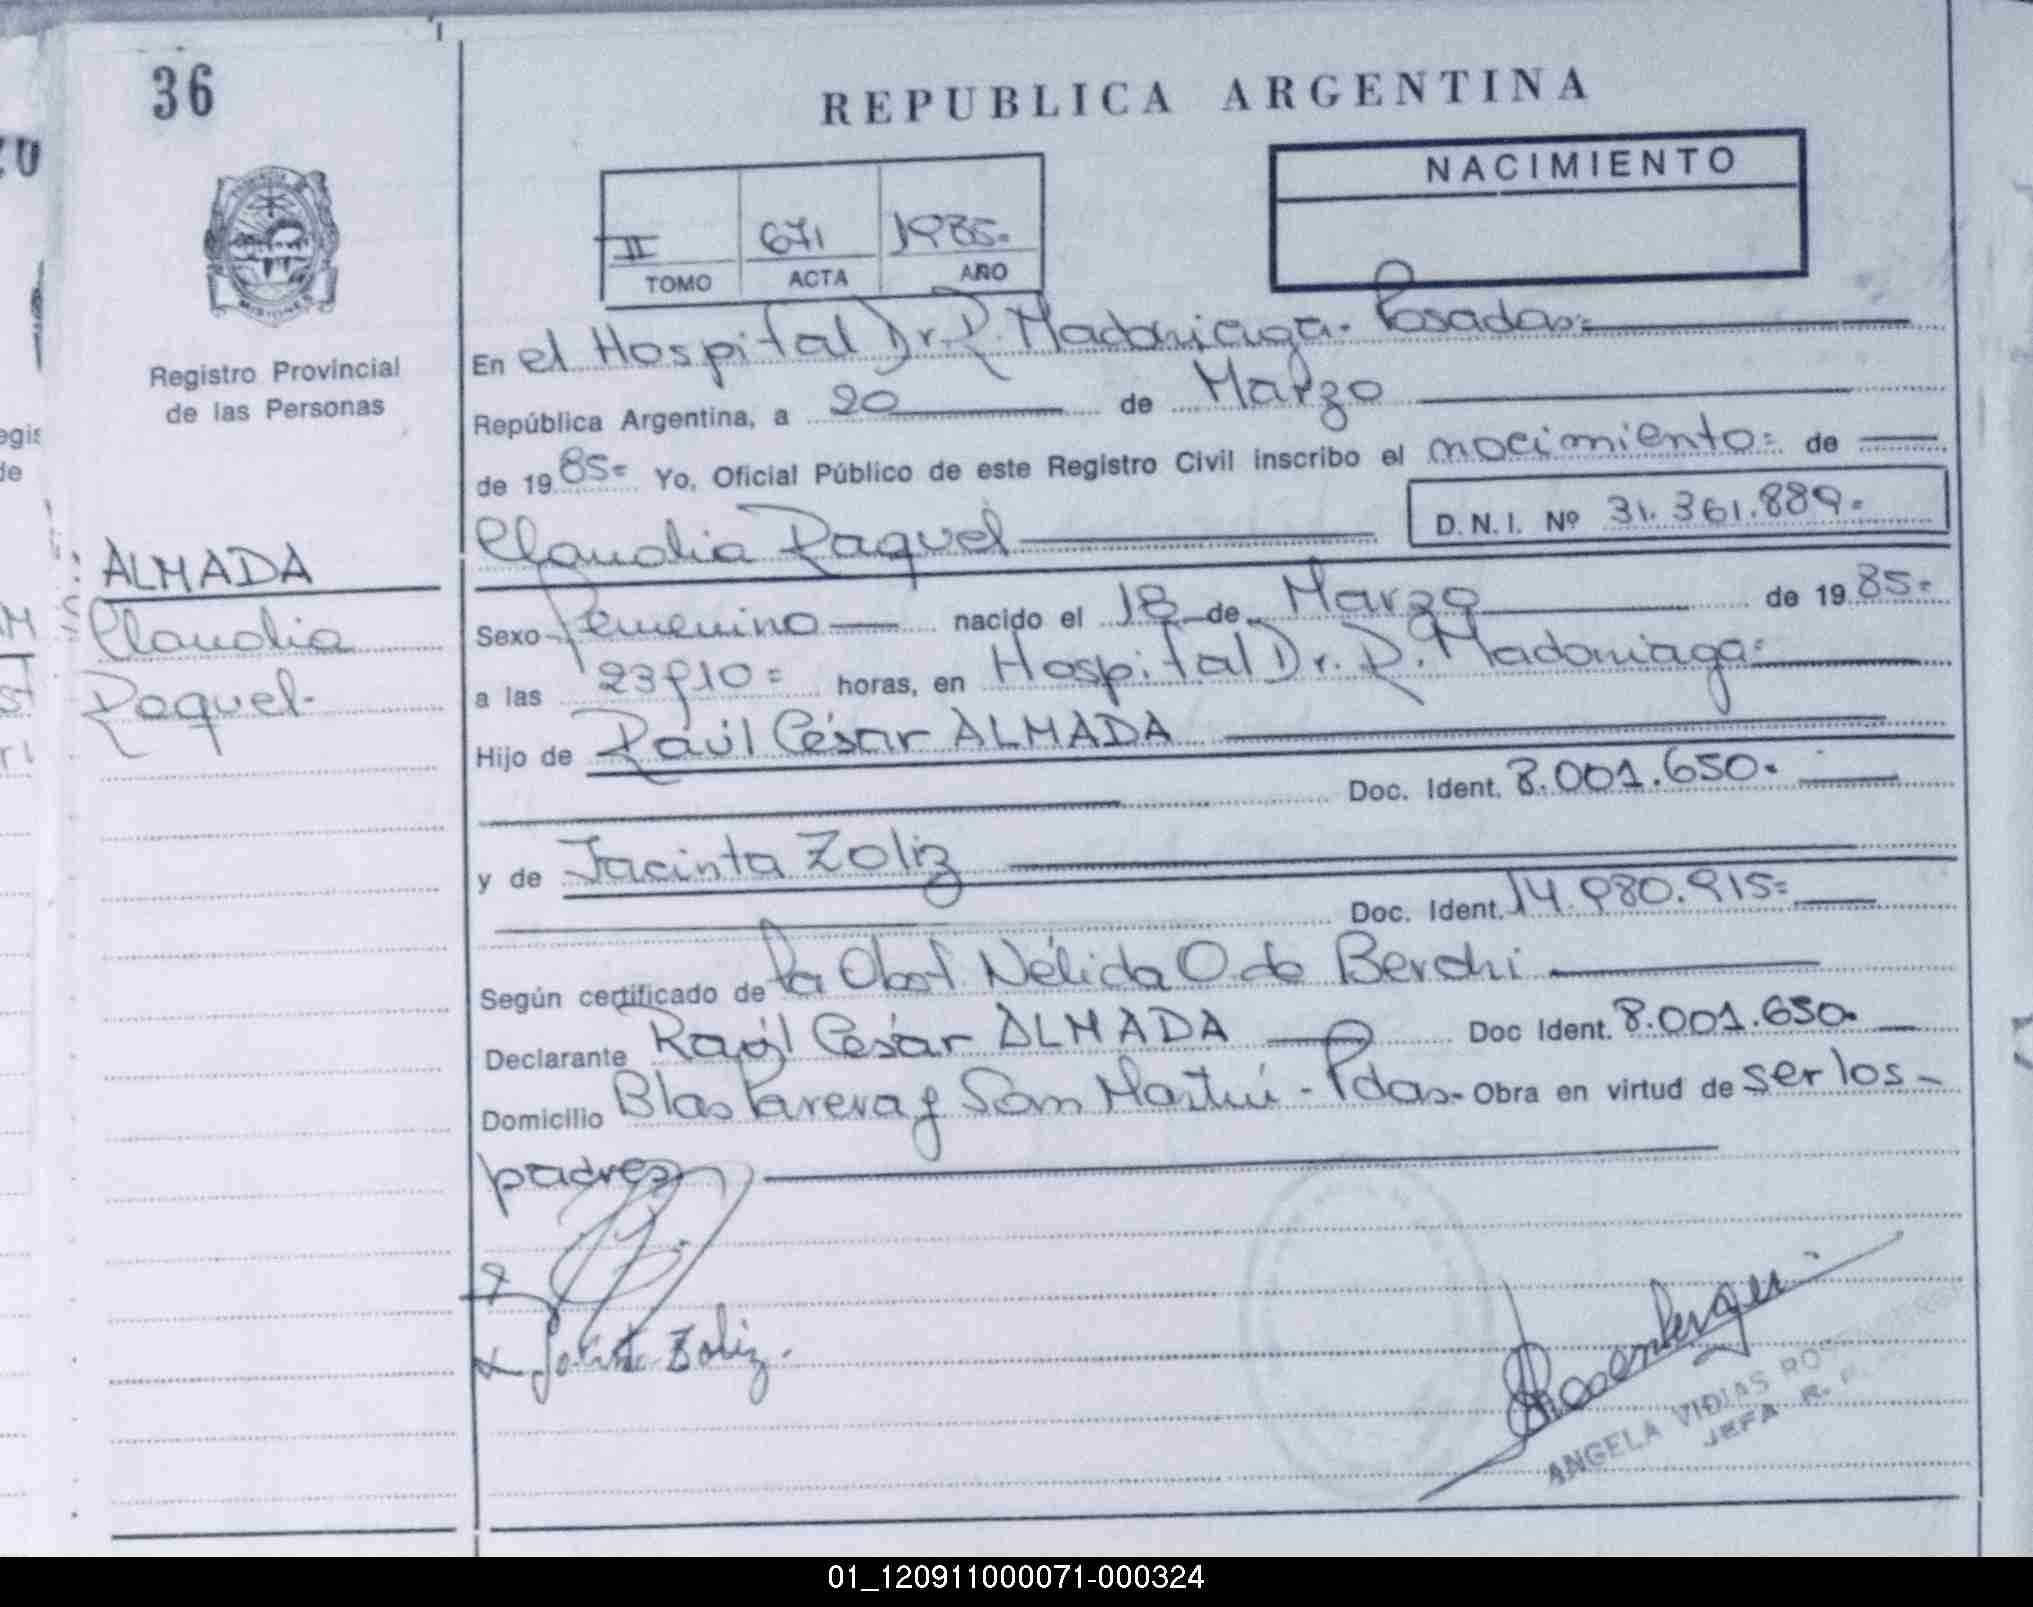 36
REPUBLICA ARGENTINA
NACIMIENTO
II 671 1985.
TOMO ACTA AÑO
Registro Provincial
de las Personas
ALMADA
Claudia
Raquel.
En el Hospital Dr. R. Madariaga. Posadas=
República Argentina, a 20 de Marzo
de 1985= Yo, Oficial Público de este Registro Civil inscribo el nacimiento= de
Claudia Raquel D.N.I. Nº 31.361.889.
Sexo Femenino nacido el 18 de Marzo de 1985=
a las 23y10= horas, en Hospital Dr. R. Madariaga=
Hijo de Raúl César ALMADA
Doc. Ident. 8.001.650.
y de Jacinta Zoliz
Doc. Ident. 14.980.915=
Según certificado de la Obst. Nélida O. de Berchi
Declarante Raúl César ALMADA Doc Ident. 8.001.650.
Domicilio Blas Parera y San Martín - Pdas. Obra en virtud de ser los
padres
Zoliz.
ANGELA VIDIAS
JEFA R.
01_120911000071-000324